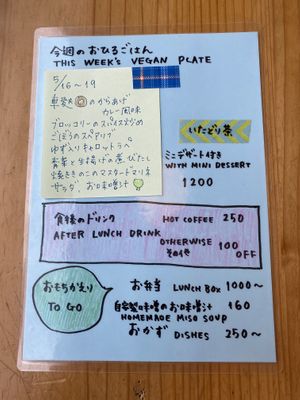 今週のおひるごはん
THIS WEEK'S VEGAN PLATE
5/16~19
車麸のからあげ
カレー風味
ブロッコリーのスパイス炒め
ごぼうのスペアリブ
ゆず入りキャロットラペ
青菜と生揚げの煮びたし
焼ききのこのマスタードマリネ
サラダ、お味噌汁
いたどり茶
ミニデザート付き
WITH MINI DESSERT
1200
食後のドリンク HOT COFFEE 250
AFTER LUNCH DRINK
OTHERWISE 100
その他 OFF
おもちかえり
TO GO
お弁当 LUNCH BOX 1000~
自家製味噌のお味噌汁 160
HOMEMADE MISO SOUP
おかず DISHES 250~